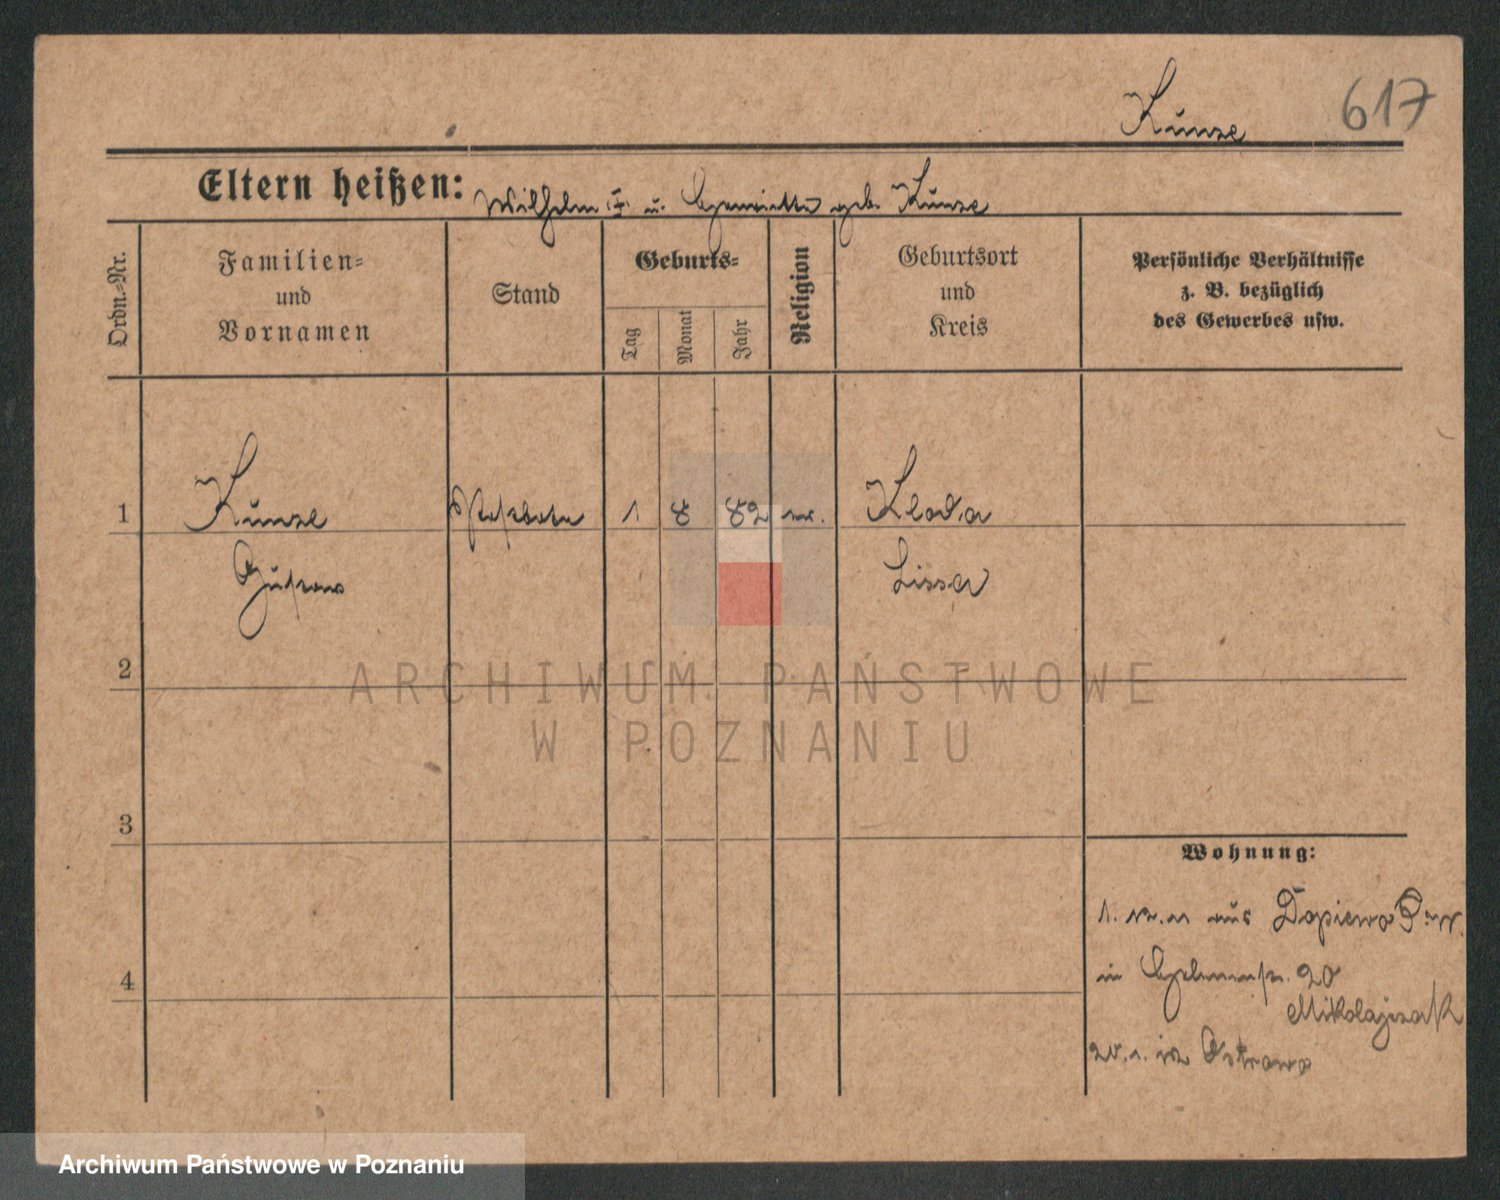 617
Kunze
Eltern heißen: Wilhelm u. Henriette geb. Kunze
Ordn.-Nr.
Familien-
und
Vornamen
Stand
Geburts-
Tag
Monat
Jahr
Religion
Geburtsort
und
Kreis
Persönliche Verhältnisse
z. B. bezüglich
des Gewerbes usw.
1 Kunze 1 8 82 ev. Kloda
Gustav Lissa
2
3
4
Wohnung:
1. aus Dopiewo
in 20
Mikolajczak
in Ostrowo
ARCHIWUM PAŃSTWOWE
W POZNANIU
Archiwum Państwowe w Poznaniu